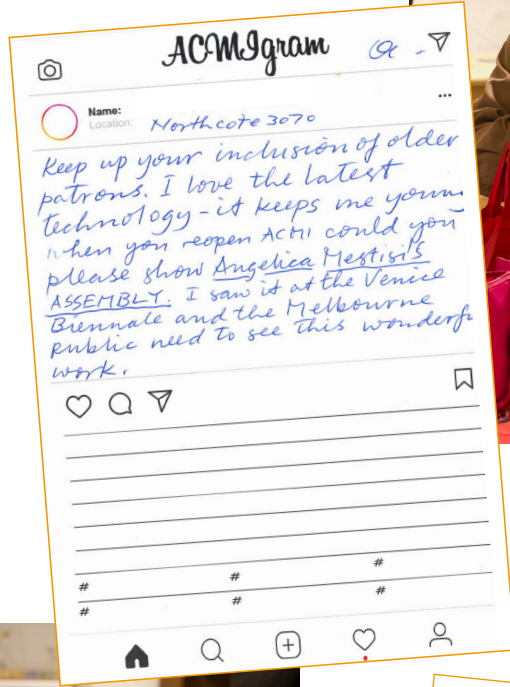 ACMIgram
Name:
Location: Northcote 3070
Keep up your inclusion of older
patrons. I love the latest
technology - it keeps me young
when you reopen ACMI could you
please show Angelica Mestisis
ASSEMBLY. I saw it at the Venice
Biennale and the Melbourne
public need to see this wonderfu
work.
# # #
# # #